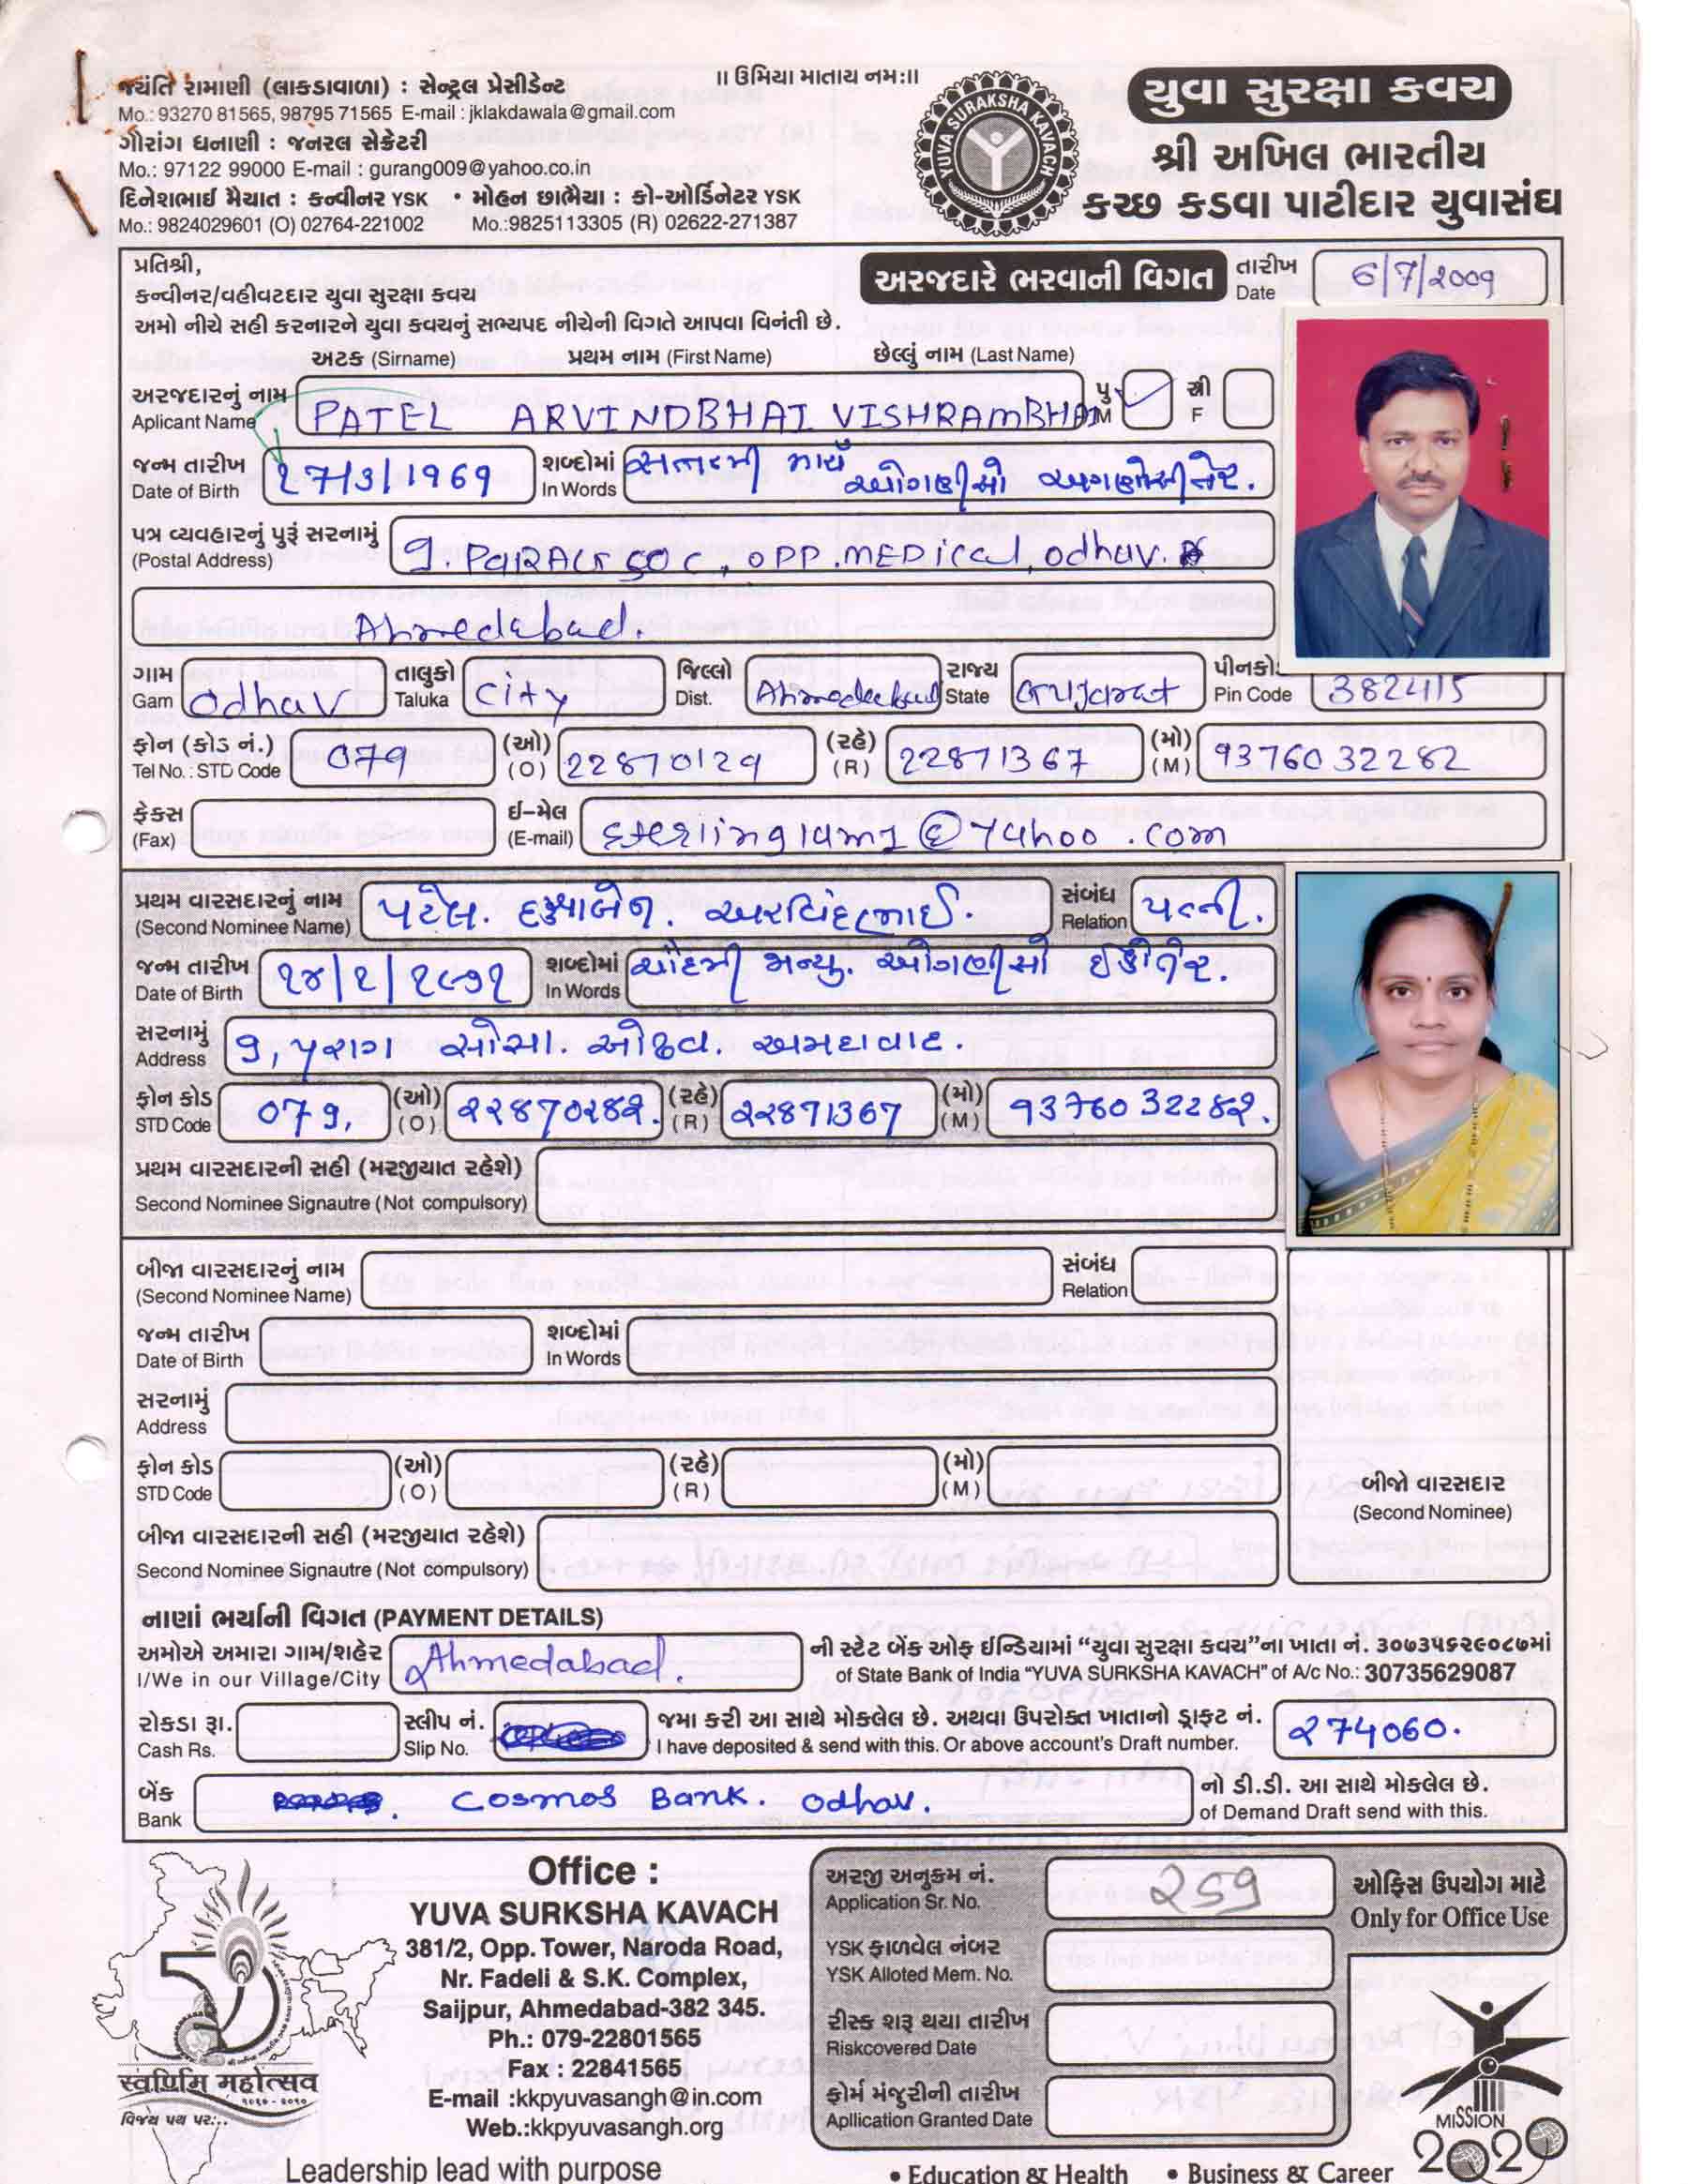 જયંતિ રામાણી (લાકડાવાળા) : સેન્ટ્રલ પ્રેસીડેન્ટ
Mo.: 93270 81565, 98795 71565 E-mail : jklakdawala@gmail.com
ગૌરાંગ ધનાણી : જનરલ સેક્રેટરી
Mo.: 97122 99000 E-mail : gurang009@yahoo.co.in
દિનેશભાઈ મૈયાત : કન્વીનર YSK • મોહન છાભૈયા : કો-ઓર્ડિનેટર YSK
Mo.: 9824029601 (O) 02764-221002 Mo.:9825113305 (R) 02622-271387
॥ ઉમિયા માતાય નમઃ॥
YUVA SURAKSHA KAVACH
યુવા સુરક્ષા કવચ
શ્રી અખિલ ભારતીય
કચ્છ કડવા પાટીદાર યુવાસંઘ
પ્રતિશ્રી,
કન્વીનર/વહીવટદાર યુવા સુરક્ષા કવચ
અમો નીચે સહી કરનારને યુવા કવચનું સભ્યપદ નીચેની વિગતે આપવા વિનંતી છે.
અરજદારે ભરવાની વિગત
તારીખ Date 6/7/2009
અટક (Sirname) પ્રથમ નામ (First Name) છેલ્લું નામ (Last Name)
અરજદારનું નામ પુ સ્ત્રી
Aplicant Name PATEL ARVINDBHAI VISHRAMBHAI M F
જન્મ તારીખ શબ્દોમાં સતાવીસમી માર્ચ
Date of Birth 27/3/1969 In Words ઓગણીસો
પત્ર વ્યવહારનું પુરૂં સરનામું
(Postal Address) 9. PARAG SOC, OPP. MEDICAL, Odhav.
Ahmedabad.
ગામ તાલુકો જિલ્લો રાજ્ય પીનકો
Gam Odhav Taluka City Dist. Ahmedabad State Gujarat Pin Code 382415
ફોન (કોડ નં.) (ઓ) (રહે) (મો)
Tel No. : STD Code 079 (O) 22870129 (R) 22871367 (M) 9376032282
ફેકસ ઈ-મેલ
(Fax) (E-mail) @yahoo.com
પ્રથમ વારસદારનું નામ સંબંધ
(Second Nominee Name) પટેલ. દક્ષાબેન. અરવિંદભાઈ. Relation પત્ની.
જન્મ તારીખ શબ્દોમાં
Date of Birth ૧૪/૧/૧૯૭૧ In Words ચૌદમી જાન્યુ. ઓગણીસો ઈકોતેર.
સરનામું
Address 9, પરાગ સોસા. ઓઢવ. અમદાવાદ.
ફોન કોડ (ઓ) (રહે) (મો)
STD Code 079, (O) (R) ૨૨871367 (M) 9376032282.
પ્રથમ વારસદારની સહી (મરજીયાત રહેશે)
Second Nominee Signautre (Not compulsory)
બીજા વારસદારનું નામ સંબંધ
(Second Nominee Name) Relation
જન્મ તારીખ શબ્દોમાં
Date of Birth In Words
સરનામું
Address
ફોન કોડ (ઓ) (રહે) (મો)
STD Code (O) (R) (M)
બીજા વારસદારની સહી (મરજીયાત રહેશે)
Second Nominee Signautre (Not compulsory)
બીજો વારસદાર
(Second Nominee)
નાણાં ભર્યાની વિગત (PAYMENT DETAILS)
અમોએ અમારા ગામ/શહેર ની સ્ટેટ બેંક ઓફ ઈન્ડિયામાં “યુવા સુરક્ષા કવચ”ના ખાતા નં. ૩૦૭૩૫૬૨૯૦૮૭માં
I/We in our Village/City Ahmedabad. of State Bank of India “YUVA SURKSHA KAVACH” of A/c No.: 30735629087
રોકડા રૂા. સ્લીપ નં. જમા કરી આ સાથે મોકલેલ છે. અથવા ઉપરોક્ત ખાતાનો ડ્રાફ્ટ નં.
Cash Rs. Slip No. I have deposited & send with this. Or above account's Draft number. 274060.
બેંક નો ડી.ડી. આ સાથે મોકલેલ છે.
Bank Cosmos Bank. Odhav. of Demand Draft send with this.
Office :
YUVA SURKSHA KAVACH
381/2, Opp. Tower, Naroda Road,
Nr. Fadeli & S.K. Complex,
Saijpur, Ahmedabad-382 345.
Ph.: 079-22801565
Fax : 22841565
E-mail :kkpyuvasangh@in.com
Web.:kkpyuvasangh.org
અરજી અનુક્રમ નં.
Application Sr. No. 259
YSK ફાળવેલ નંબર
YSK Alloted Mem. No.
રીસ્ક શરૂ થયા તારીખ
Riskcovered Date
ફોર્મ મંજૂરીની તારીખ
Apllication Granted Date
ઓફિસ ઉપયોગ માટે
Only for Office Use
स्वर्णिम महोत्सव
વિજય પથ પર...
MISSION
2020
Leadership lead with purpose
• Education & Health • Business & Career